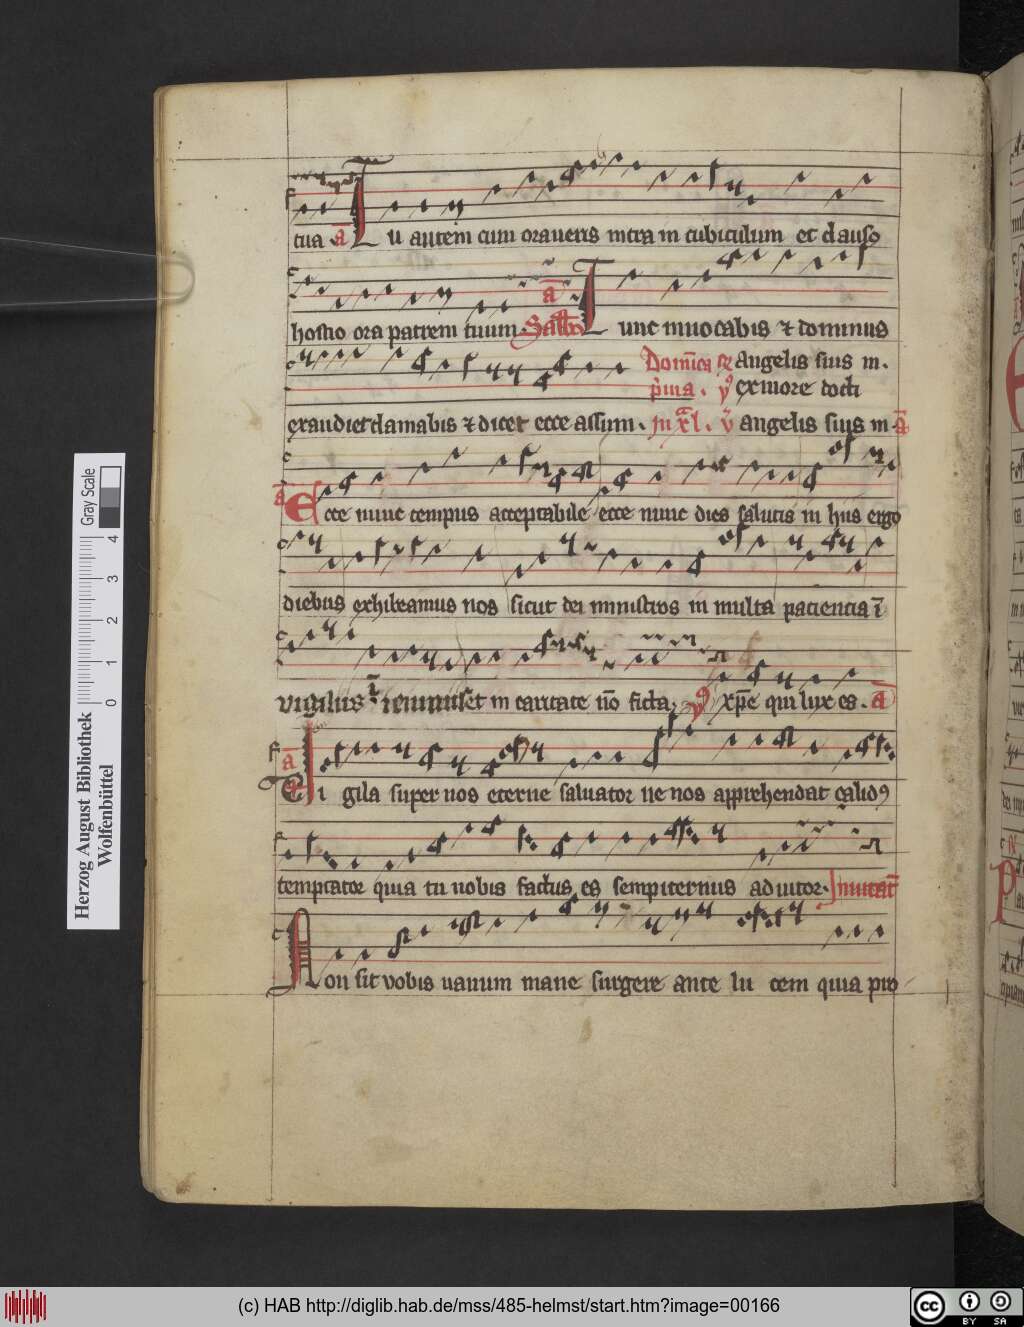 tua · ā Tu autem cum oraueris intra in cubiculum et clauso
hostio ora patrem tuum · Sabbō ā Tunc inuocabis ⁊ dominus
Domīca angelis suis in.
p̄ma . ex more docti
exaudiet clamabis ⁊ dicet ecce assum . angelis suis in · ā
ā Ecce nunc tempus acceptabile ecce nunc dies salutis in hiis ergo
diebus exhibeamus nos sicut dei ministros in multa paciencia ī
uigiliis ī ieiuniis et in caritate nō ficta, xp̄e qui lux es . ā
ā Vigila super nos eterne saluator ne nos apprehendat calidꝰ
temptator quia tu nobis factus es sempiternus adiutor · Inuitat̄
Non sit vobis uanum mane surgere ante lucem quia pro
Herzog August Bibliothek
Wolfenbüttel
Gray Scale
0 1 2 3 4
(c) HAB http://diglib.hab.de/mss/485-helmst/start.htm?image=00166
cc BY SA